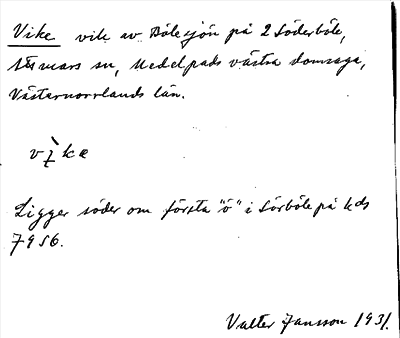 Vike vik av Bölesjön på 2 Söderböle,
Attmars sn, Medelpads västra domsaga,
Västernorrlands län.
vìkæ
Ligger söder om första "ö" i Sörböle på kds
7956.
Valter Jansson 1931.